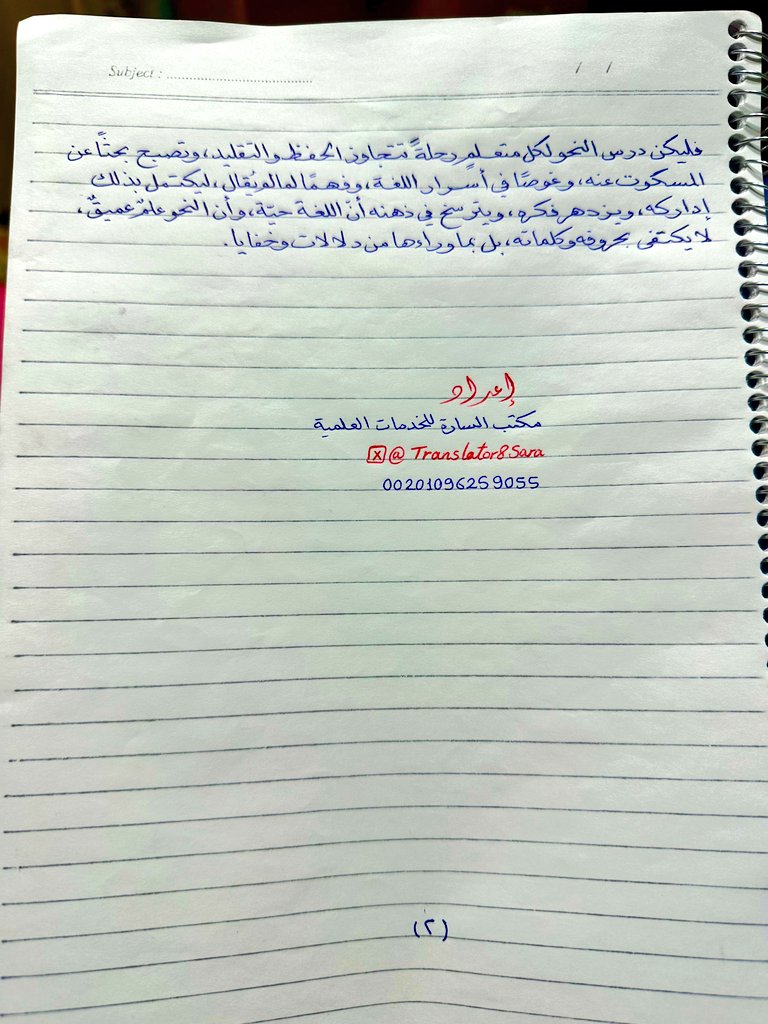 Subject : ...................................... / /
فليكن درس النحو لكل متعلمٍ رحلةً تتجاوز الحفظ والتقليد، وتصبح بحثًا عن
المسكوت عنه، وغوصًا في أسرار اللغة، وفهمًا لما لم يُقال، ليكتمل بذلك
إداركه، ويزدهر فكره، ويترسخ في ذهنه أنّ اللغة حيّة، وأن النحو علمٌ عميقٌ،
لا يكتفى بحروفه وكلماته، بل بما وراءها من دلالات وخفايا.
إعداد
مكتب السارة للخدمات العلمية
X@ Translator8Sara
00201096259055
(٢)